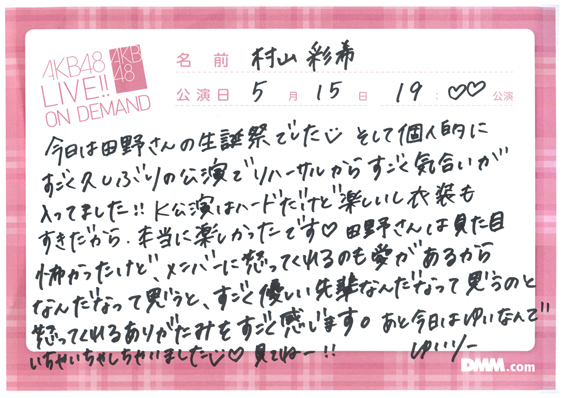 AKB48
LIVE!!
ON DEMAND
AKB
48
名前 村山彩希
公演日 5月15日 19:♡♡公演
今日は田野さんの生誕祭でした そして個人的に
すごく久しぶりの公演でリハーサルからすごく気合いが
入ってました!! K公演はハードだけど楽しいし衣装も
すきだから、本当に楽しかったです♡ 田野さんは見た目
怖かったけど、メンバーに怒ってくれるのも愛があるから
なんだなって思うと、すごく優しい先輩なんだなって思うのと
怒ってくれるありがたみをすごく感じます。あと今日はゆいなんで
いちゃいちゃしちゃいました♡ 見てねー!! ゆいりー
DMM.com